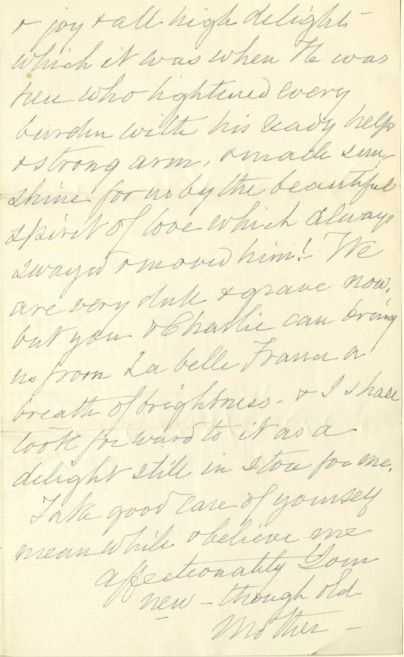 & joy & all high delights
which it was when He was
here who lightened every
burden with his ready help
& strong arm, & made sun-
shine for us by the beautiful
spirit of love which always
swayed & moved him! We
are very dull & grave now,
but you & Charlie can bring
us from La belle France a
breath of brightness - & I shall
look forward to it as a
delight still in store for me.
Take good care of yourself
meanwhile & believe me
affectionately Your
new - though old
Mother -